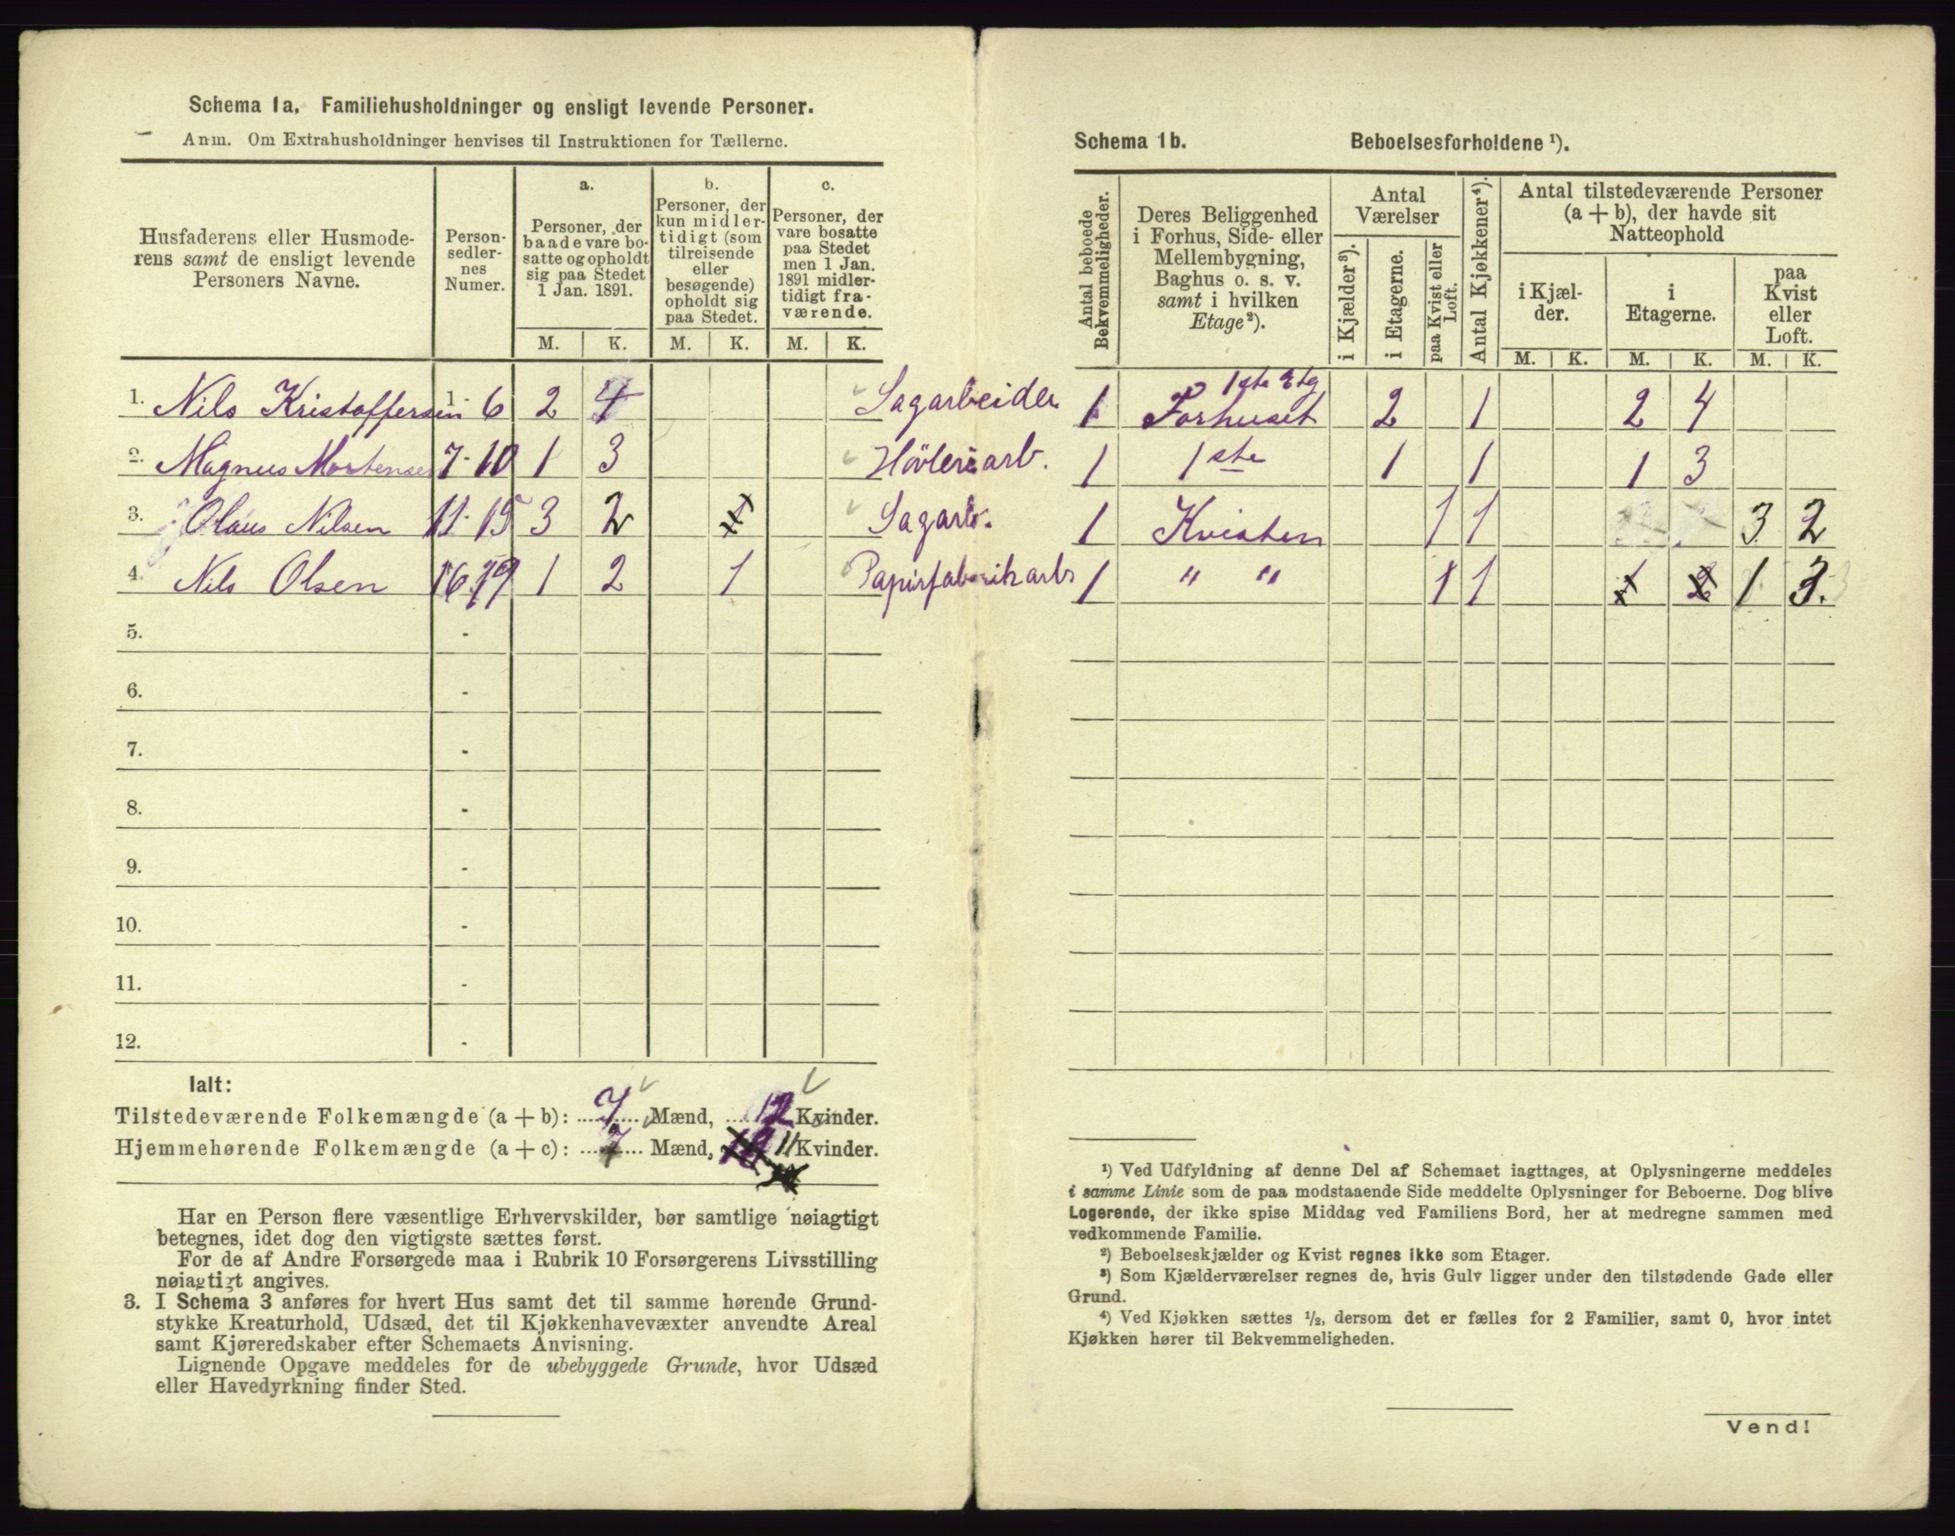 Schema 1a. Familiehusholdninger og ensligt levende Personer.
Anm. Om Extrahusholdninger henvises til Instruktionen for Tællerne.
Husfaderens eller Husmoderens samt de ensligt levende Personers Navne.
Person-sedler-nes Numer.
a.
Personer, der baade vare bosatte og opholdt sig paa Stedet 1 Jan. 1891.
b.
Personer, der kun midlertidigt (som tilreisende eller besøgende) opholdt sig paa Stedet.
c.
Personer, der vare bosatte paa Stedet men 1 Jan. 1891 midlertidigt fraværende.
M. K. M. K. M. K.
1. Nils Kristoffersen 1-6 2 4 Sagarbeider
2. Magnus Mortensen 7-10 1 3 Høvleriarb.
3. Olaus Nilsen 11-15 3 2 Sagarb.
4. Nils Olsen 16-19 1 2 1 Papirfabrikarb
5. -
6. -
7. -
8. -
9. -
10. -
11. -
12. -
Ialt:
Tilstedeværende Folkemængde (a + b): 7 Mænd, 12 Kvinder.
Hjemmehørende Folkemængde (a + c): 7 Mænd, 11 Kvinder.
Har en Person flere væsentlige Erhvervskilder, bør samtlige nøiagtigt
betegnes, idet dog den vigtigste sættes først.
For de af Andre Forsørgede maa i Rubrik 10 Forsørgerens Livsstilling
nøiagtigt angives.
3. I Schema 3 anføres for hvert Hus samt det til samme hørende Grund-
stykke Kreaturhold, Udsæd, det til Kjøkkenhavevæxter anvendte Areal
samt Kjøreredskaber efter Schemaets Anvisning.
Lignende Opgave meddeles for de ubebyggede Grunde, hvor Udsæd
eller Havedyrkning finder Sted.
Schema 1b. Beboelsesforholdene ¹).
Antal beboede Bekvemmeligheder.
Deres Beliggenhed i Forhus, Side- eller Mellembygning, Baghus o. s. v. samt i hvilken Etage ²).
Antal Værelser
i Kjælder ³).
i Etagerne.
paa Kvist eller Loft.
Antal Kjøkkener ⁴).
Antal tilstedeværende Personer (a + b), der havde sit Natteophold
i Kjælder.
i Etagerne.
paa Kvist eller Loft.
M. K. M. K. M. K.
1 Forhuset 1ste Etg 2 1 2 4
1 1ste 1 1 1 3
1 Kvisten 1 1 3 2
1 " " 1 1 1 3.
¹) Ved Udfyldning af denne Del af Schemaet iagttages, at Oplysningerne meddeles
i samme Linie som de paa modstaaende Side meddelte Oplysninger for Beboerne. Dog blive
Logerende, der ikke spise Middag ved Familiens Bord, her at medregne sammen med
vedkommende Familie.
²) Beboelseskjælder og Kvist regnes ikke som Etager.
³) Som Kjælderværelser regnes de, hvis Gulv ligger under den tilstødende Gade eller
Grund.
⁴) Ved Kjøkken sættes ½, dersom det er fælles for 2 Familier, samt 0, hvor intet
Kjøkken hører til Bekvemmeligheden.
Vend!